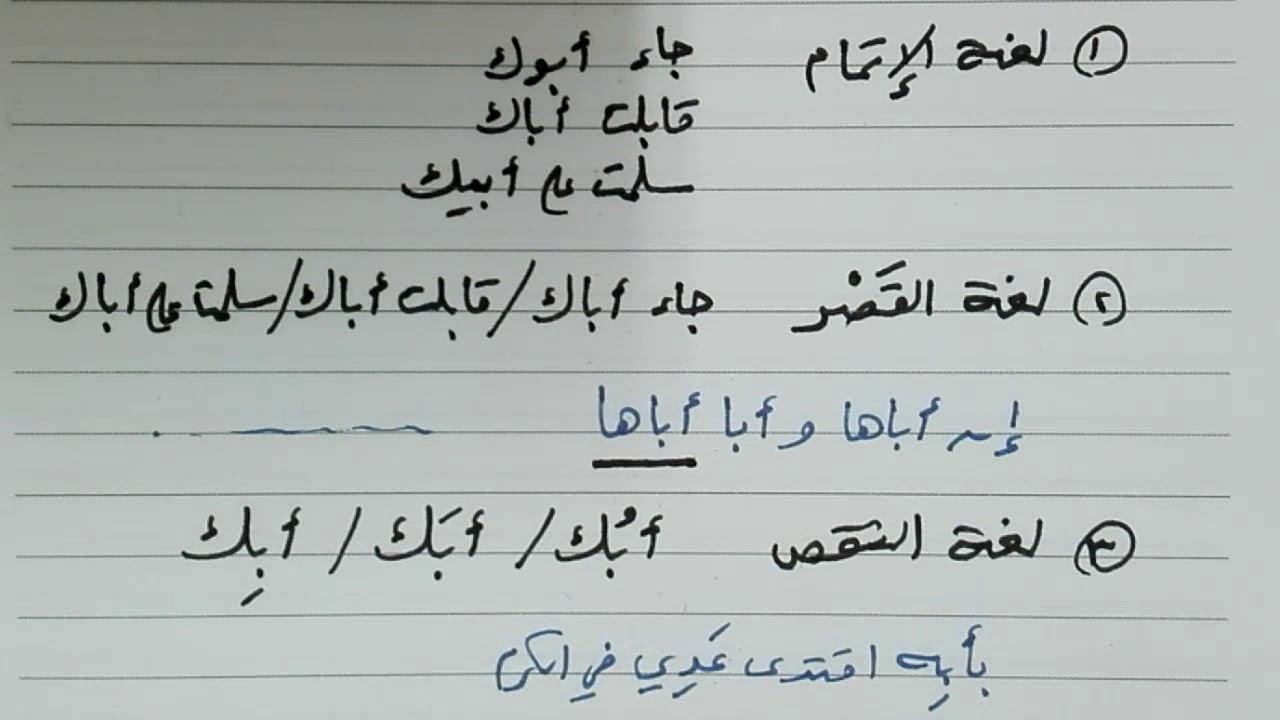 ١ لغة الإتمام جاء أبوك
قابلت أباك
سلمت على أبيك
٢ لغة القَصْر جاء أباك / قابلت أباك / سلمت على أباك
إن أباها و أبا أباها
٣ لغة النقص أبُك / أبَك / أبِك
بأبِه اقتدى عَدِي في الكرم